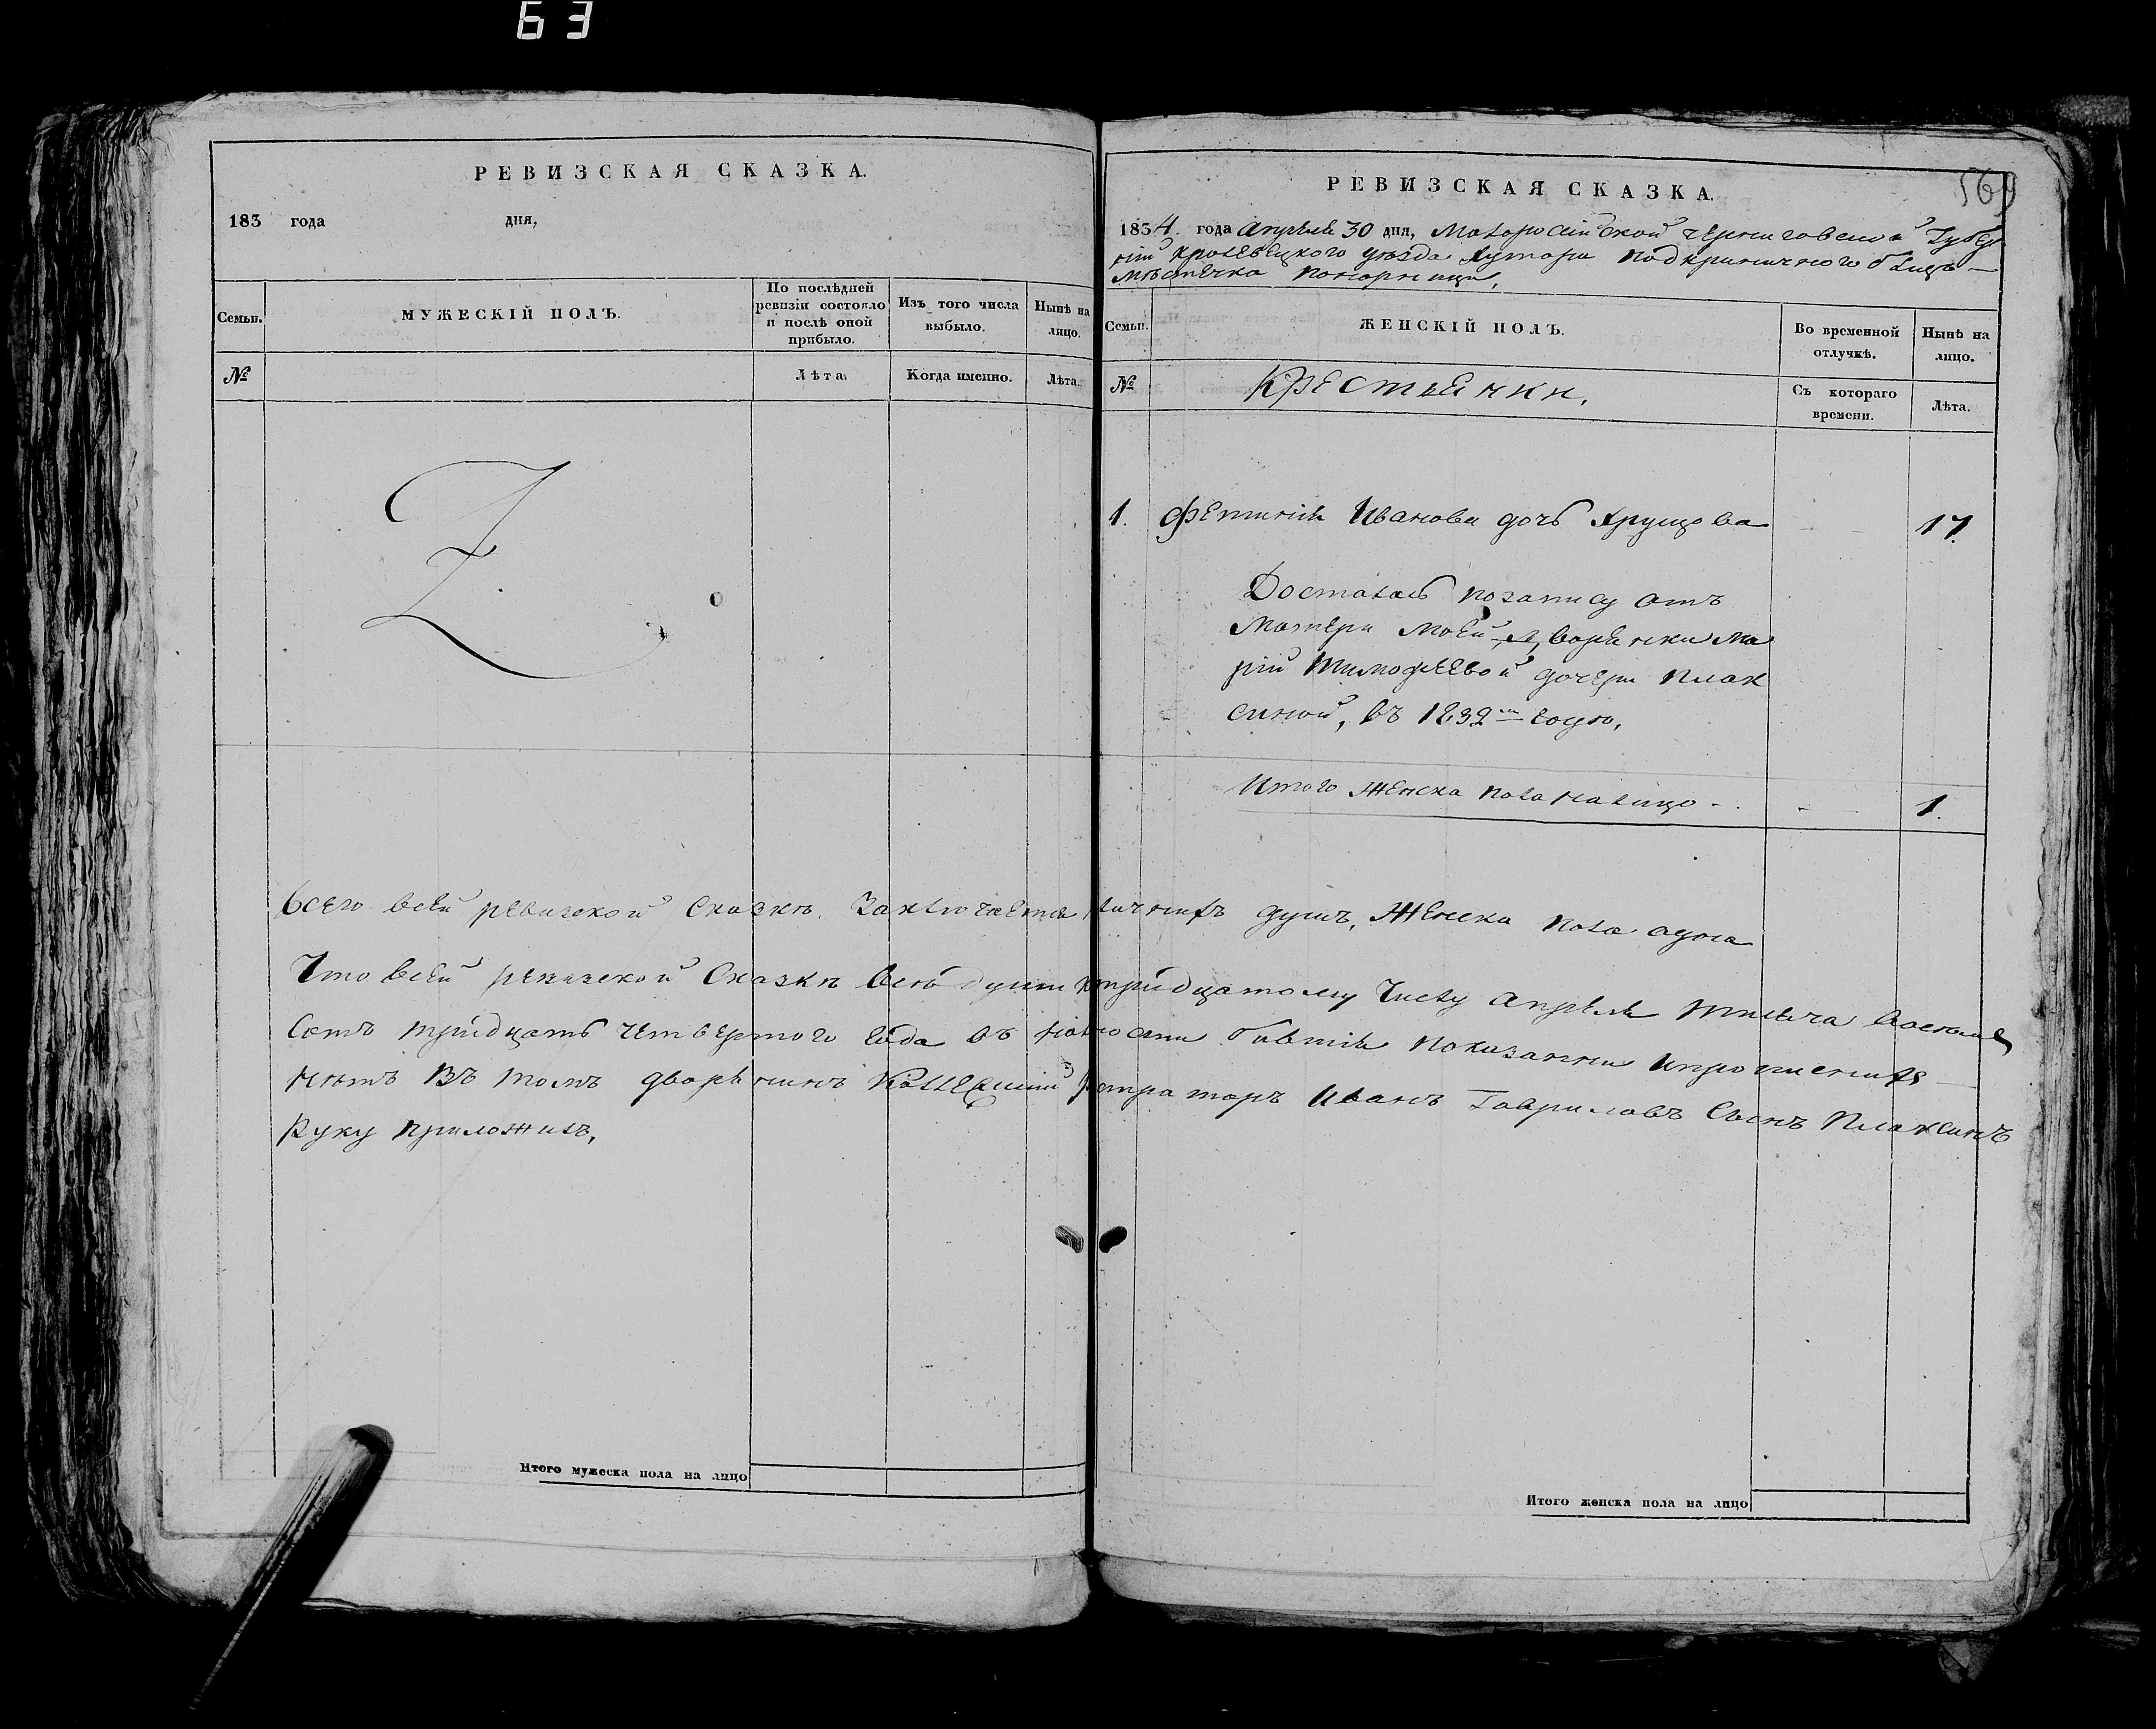 63
РЕВИЗСКАЯ СКАЗКА.
183 года дня,
Семьи.
МУЖЕСКІЙ ПОЛЪ.
По послѣдней ревизіи состояло и послѣ оной прибыло.
Изъ того числа выбыло.
Нынѣ на лицо.
№
Лѣта.
Когда именно.
Лѣта.
569
РЕВИЗСКАЯ СКАЗКА.
1834. года Апрѣля 30 дня, Малоросійской Черниговской Губер
ніи Кролевецкого уѣзда хутора Подкриничного близъ
мѣстечка Понорници,
Семьи.
ЖЕНСКІЙ ПОЛЪ.
Во временной отлучкѣ.
Нынѣ на лицо.
№
Крестьянки.
Съ котораго времени.
Лѣта.
1. Фетинія Иванова дочь Хрущова 17
Досталась позапису отъ
Матери моей дворянки Ма
рій Тимофѣевой дочери Плак
синой, въ 1832м году,
Итого женска пола налицо 1.
Всего всей ревизской сказкѣ заключается личнихъ душъ, женска пола одна
Что всей ревизской сказкѣ всѣ души ктридцатому числу апрѣля тисяча восемъ
сотъ тридцать четвертого года въ налиости бившія показанни ипрописнихъ
нѣтъ въ томъ дворянинъ Колежскій регистраторъ Иванъ Гавриловъ сынъ Плаксинъ
руку приложилъ,
Итого мужеска пола на лицо
Итого женска пола на лицо